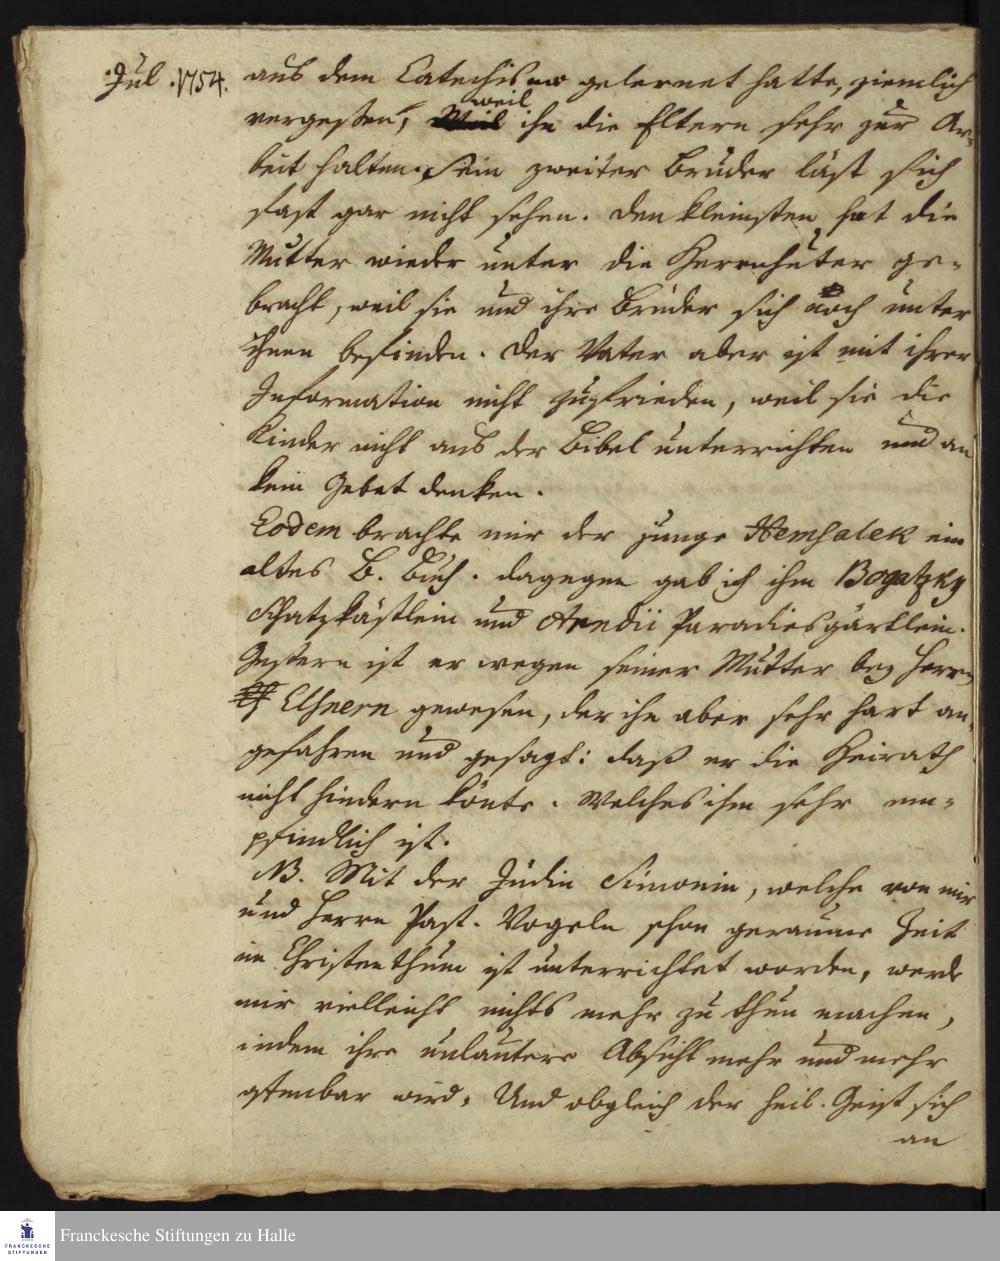 Jul. 1754.
aus dem Catechismo gelernet hatte, ziemlich
vergeßen, weil ihn die Eltern sehr zur Ar-
beit halten. Sein zweiter Bruder läst sich
fast gar nicht sehen. Den kleinsten hat die
Mutter wieder unter die Herrnhuter ge-
bracht, weil sie und ihre Brüder sich noch unter
ihnen befinden. Der Vater aber ist mit ihrer
Information nicht zufrieden, weil sie die
Kinder nicht aus der Bibel unterrichten und an
kein Gebet denken.
Eodem brachte mir der junge Hemsalek ein
altes B. Buch. dagegen gab ich ihm Bogatzky
Schatzkästlein und Arndii Paradiesgärtlein.
Gestern ist er wegen seiner Mutter bey Herrn
Elsnern gewesen, der ihn aber sehr hart an-
gefahren und gesagt: daß er die Heirath
nicht hindern könte. Welches ihm sehr em-
pfindlich ist.
NB. Mit der Jüdin Simonin, welche von mir
und Herrn Past. Vogeln schon geraume Zeit
im Christenthum ist unterrichtet worden, werde
mir vielleicht nichts mehr zu thun machen,
indem ihre unlautere Absicht mehr und mehr
offenbar wird. Und obgleich der heil. Geist sich
an
Franckesche Stiftungen zu Halle
FRANCKESCHE
STIFTUNGEN